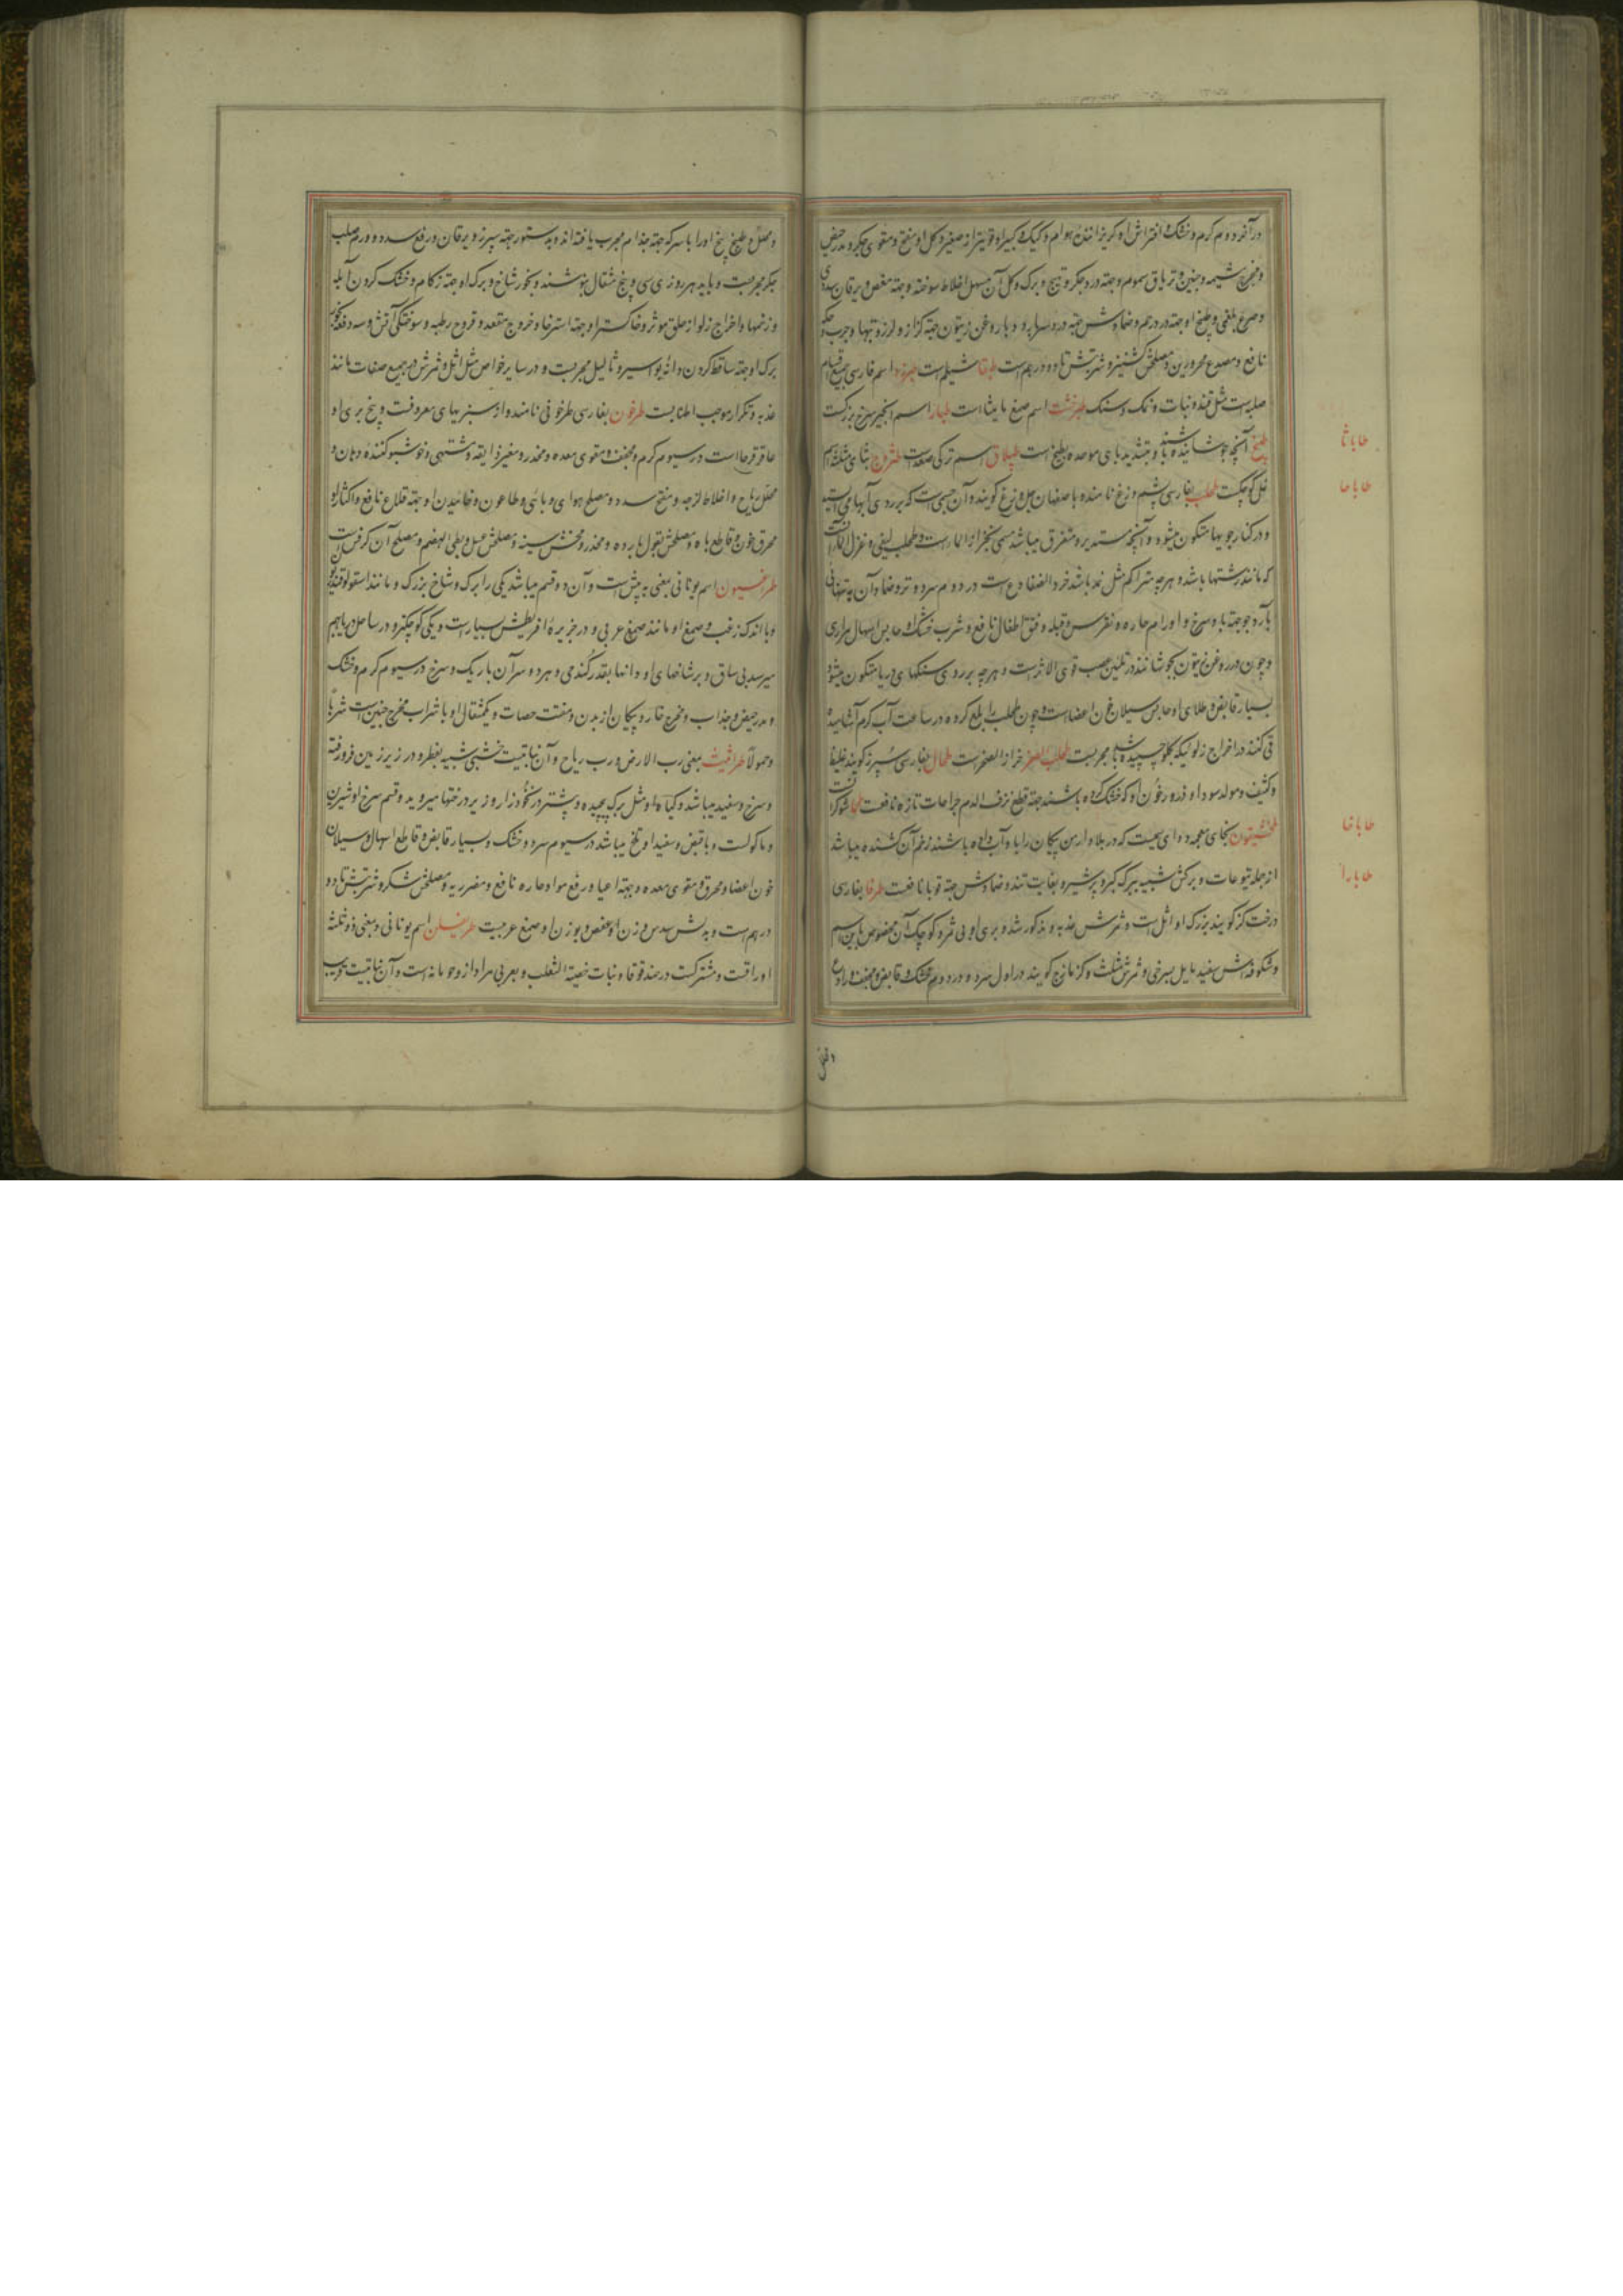 در آخر دوم گرم و خشک و افتراش او گریزاننده هوام و کیک و کبیر او قویتر از صغیر و کل او مفتح و مقوی جگر و مدر حیض
و مخرج مشیمه و جنین و تریاق سموم و جهته درد جگر و تهیج و برک و کل آن مسهل اخلاط سوخته و جهته مغص و یرقان سدی
و صرع بلغمی و طبیخ او جهته درد رحم و ضمادش جهته درد سر بارد و با روغن زیتون جهته کزاز و لرز و تبها و جرب و حکه
نافع و مصدع محرورین و مصلحش کشنیز و شربتش تا دو درهم است طبرقا شیلم است طبرزد اسم فارسی جمیع اقسام
صلبه است مثل قند و نبات و نمک و سنک طبرخشت اسم صمغ مامیثا است طبار اسم انجیر سرخ بزرکست
طبیخ آنچه جوشانیده باشند و بتشدید بای موحده بطیخ است طیلاق اسم ترکی صعد است طثرج بثای مثلثه اسم
نمل کوچکست طحلب بفارسی پشم وزغ نامند و باصفهان جل وزغ کویند و آن جسمی است که بر روی آبهای ایستاده
و در کنار جویها متکون میشود و آنچه مستدیر و متفرق میباشد مسمی بخرا الماء است و طحلب لیفی و غزل الماء آنست
که مانند رشتها باشد و هرچه متراکم مثل نمد باشد خرء الضفادع است در دوم سرد و تر و ضماد آن به تنهائی
با آرد جو جهته باد سرخ و اورام حاره و نقرس و قیله و فتق اطفال نافع و شرب خشک او حابس اسهال مراری
و چون در روغن زیتون بجوشانند در تلیین عصب قوی الاثر است و هرچه بر روی سنکهای دریا متکون میشود
بسیار قابض و طلای او حابس سیلان خون اعضاست و چون طحلب را بلع کرده در ساعت آب گرم آشامیده
قی کنند در اخراج زلو لیکه بکلو چسپیده باشد مجربست طحلب الصخر خزاز الصخر است طحال بفارسی سپرز کویند غلیظ
و کثیف و مولد سودا و ذرور خون او که خشک کرده باشند جهته قطع نزف الدم جراحات تازه نافعست طحما شوکران
طخشیقون بخای معجمه دوای سمیست که در بلاد ارمن پیکان را با و آب داده باشند زخم آن کشنده میباشد
از جمله یتوعات و برکش شبیه ببرک کبر و پر شیره و بغایت تند و ضمادش جهته قوبا نافعست طرفا بفارسی
درخت کز کویند بزرک او اثل است و ثمرش عذبه و مذکور شد و بری او بی ثمر و کوچک آن مخصوص باین اسم
و شکوفه اش سفید مایل بسرخی و ثمرش مثلث و کزمازج کویند در اول سرد و در دوم خشک و قابض و مجفف و رادع
طاباثا
طاباحا
طاباخا
طابارا
و محلل و طبیخ بیخ او را با سرکه جهته جذام مجرب یافته اند و بدستور جهته سپرز و یرقان و رفع سدد و ورم صلب
جگر مجربست و باید هر روزی سی و پنج مثقال بنوشند و بخور شاخ و برک او جهته زکام و خشک کردن آبله
و زخمها و اخراج زلو از حلق موثر و خاکستر او جهته استرخا و خروج مقعد و قروح رطبه و سوختگی آتش و سه دفعه بخور
برک او جهته ساقط کردن دانه بواسیر و ثالیل مجربست و در سایر خواص مثل اثل و ثمرش در جمیع صفات مانند
عذبه و تکرار موجب اطنابست طرخون بفارسی طرخونی نامند و از سبزیهای معروفست و بیخ بری او
عاقرقرحا است در سیوم گرم و مجفف و مقوی معده و مخدر و مغیر ذایقه و مشتهی و خوشبو کننده دهان و
محلل ریاح و اخلاط لزجه و مفتح سدد و مصلح هوای وبائی و طاعون و خائیدن او جهته قلاع نافع و اکثار او
محرق خون و قاطع باه و مصلحش بقول بارده و مخدر و مخشن سینه و مصلحش عسل و بطی الهضم و مصلح آن کرفس است
طراغیون اسم یونانی بمعنی به پیش است و آن دو قسم میباشد یکی را برک و شاخ بزرک و مانند اسقولوقندریون
و با اندک زغب و صمغ او مانند صمغ عربی و در جزیرۀ افریطش بسیار است و یکی کوچکتر و در ساحل دریا بهم
میرسد بی ساق و بر شاخهای او دانها بقدر گندمی و هر دو سر آن باریک و سرخ در سیوم گرم و خشک
و مدر حیض و جذاب و مخرج خار و پیکان از بدن و مفتت حصات و یکمثقال او با شراب مخرج جنین است شربا
و حمولا طراثیث بمعنی رب الارض و رب ریاح و آن نباتیست خشبی شبیه بفطر و در زیر زمین فرو رفته
و سرخ و سفید میباشد و کیاه او مثل برک پیچیده و بیشتر در نخودزار و زیر درختها میروید و قسم سرخ او شیرین
و ماکولست و با قبض و سفید او تلخ میباشد در سیوم سرد و خشک و بسیار قابض و قاطع اسهال و سیلان
خون اعضا و محرق و مقوی معده و جهته اعیا و رفع مواد حاره نافع و مضر ریه و مصلحش شکر و شربتش تا دو
درهم است و بدلش سدس وزن او عفص و بوزن او صمغ عربیست طریفیلن اسم یونانی و بمعنی ذو ثلثة
اوراقست و مشترکست در حندقوقا و نبات خصیة الثعلب و بعربی مراد از و حومانه است و آن نباتیست قریب